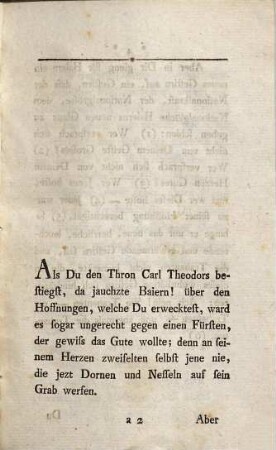 Als Du den Thron Carl Theodors be-
stiegst, da jauchzte Baiern! über den
Hoffnungen, welche Du erwecktest, ward
es sogar ungerecht gegen einen Fürsten,
der gewiss das Gute wollte; denn an sei-
nem Herzen zweifelten selbst jene nie,
die jezt Dornen und Nesseln auf sein
Grab werfen.
a 2 Aber